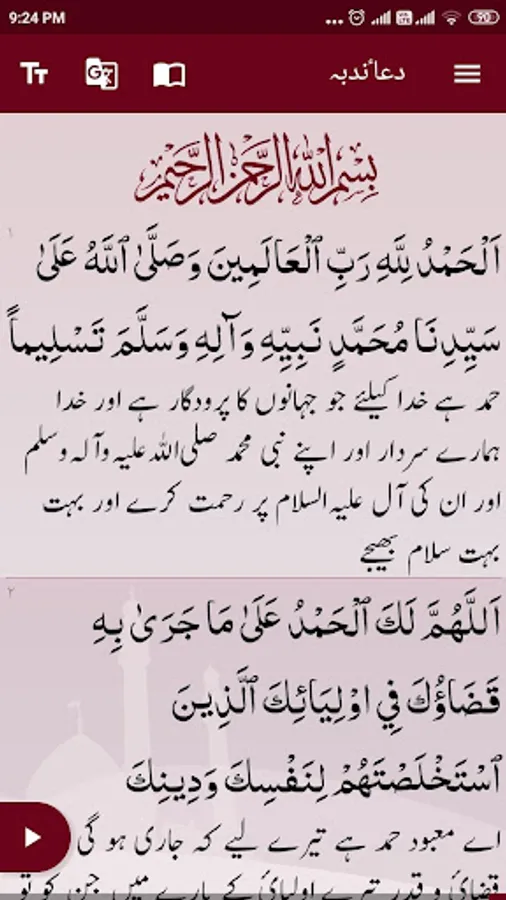 9:24 PM
90
دعائے ندبہ
بِسْمِ اللهِ الرَّحْمٰنِ الرَّحِيْمِ
١
اَلْحَمْدُ لِلَّهِ رَبِّ ٱلْعَالَمِينَ وَصَلَّىٰ ٱللَّهُ عَلَىٰ
سَيِّدِنَا مُحَمَّدٍ نَبِيِّهِ وَآلِهِ وَسَلَّمَ تَسْلِيماً
حمد ہے خدا کیلئے جو جہانوں کا پرودگار ہے اور خدا
ہمارے سردار اور اپنے نبی محمد صلی اللہ علیہ وآلہ وسلم
اور ان کی آل علیہ السلام پر رحمت کرے اور بہت
بہت سلام بھیجے
٢
اَللَّهُمَّ لَكَ ٱلْحَمْدُ عَلَىٰ مَا جَرَىٰ بِهِ
قَضَاؤُكَ فِي اوْلِيَائِكَ ٱلَّذِينَ
ٱسْتَخْلَصْتَهُمْ لِنَفْسِكَ وَدِينِكَ
اے معبود حمد ہے تیرے لیے کہ جاری ہو گی
قضائ و قدر تیرے اولیائ کے بارے میں جن کو تو